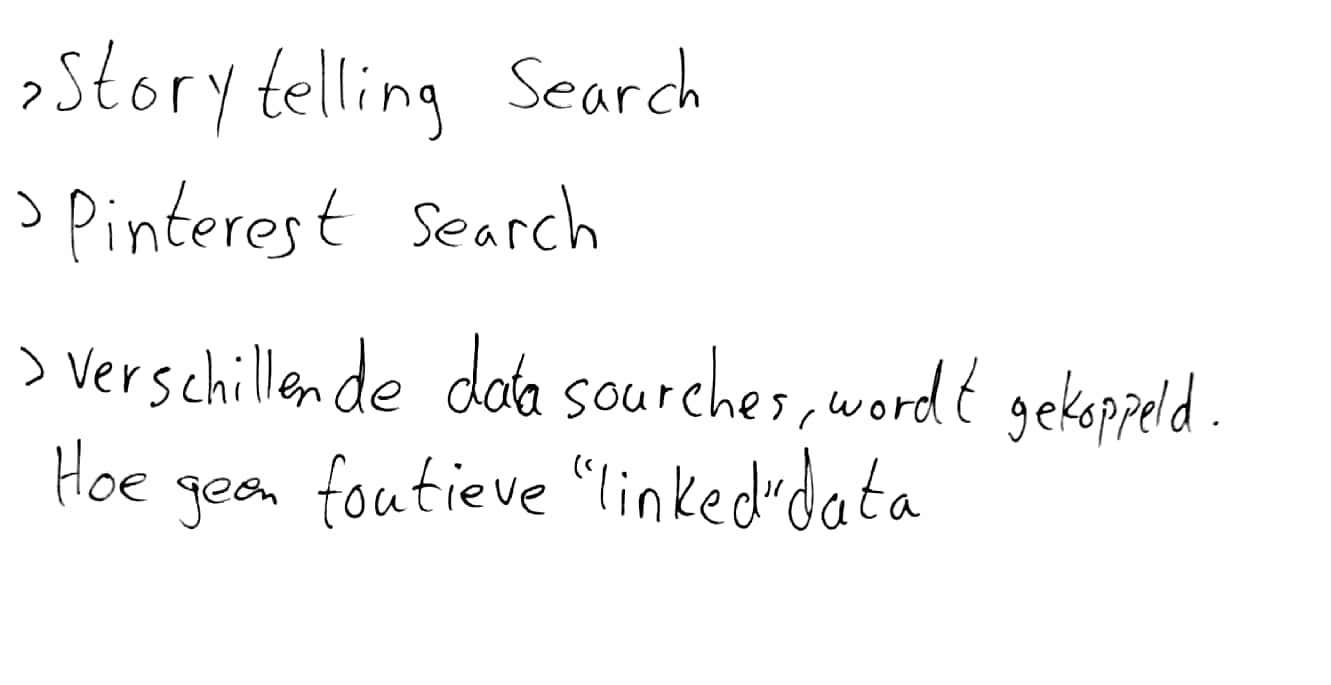 > Storytelling Search
> Pinterest search
> Verschillende data sourches, wordt gekoppeld.
Hoe geen foutieve "linked" data